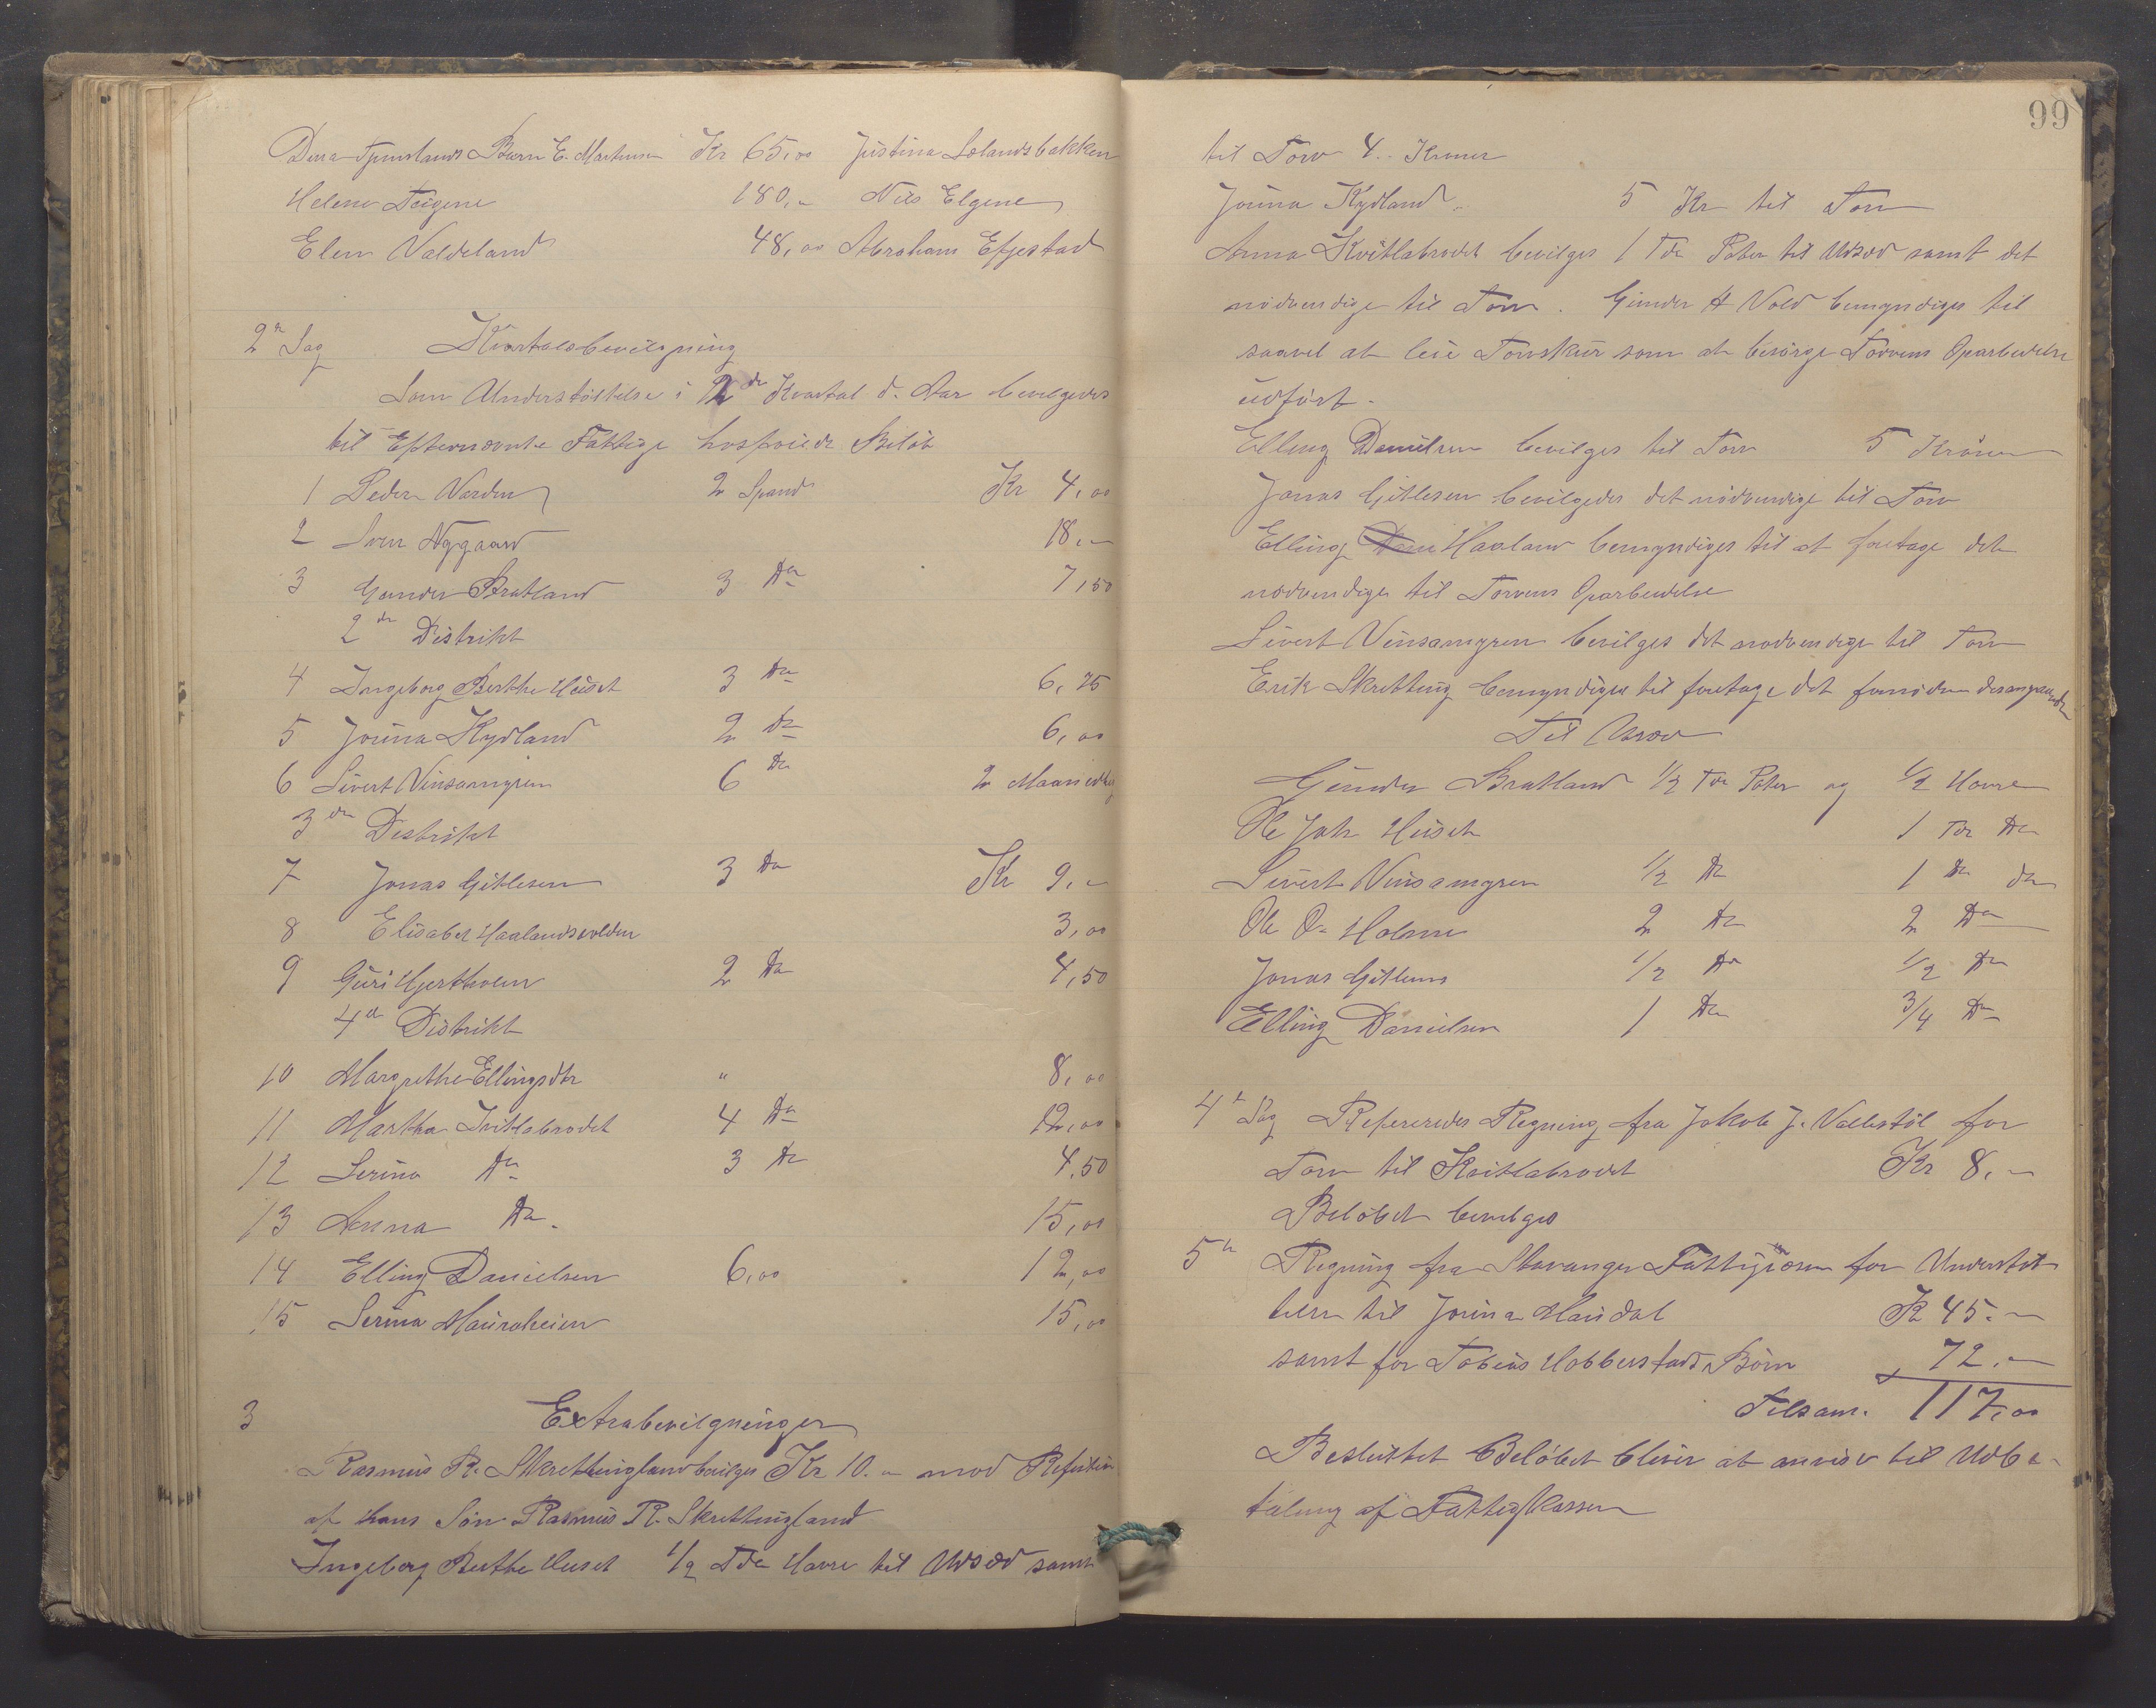 Barn E. Martinsen Kr 65,00 Justina Lolandsbakken
Helene 180,- Nils Elgene
Elen Valdeland 48,00 Abraham Efjestad
2n Sag Kvartalsbevilgning
Som Understöttelse i 2de Kvartal d. Aar bevilgedes
til Efternævnte Fattige hosföiede Belöb
1 Peder Varden 2 Spand Kr 4,00
2 Sven Nygaard 18,-
3 Gunder Bratland 3 Do 7,50
2de Distrikt
4 Ingeborg Berthe Huset 3 Do 6,75
5 Jorina Kydland 2 Do 6,00
6 Sivert Vinsamyren 6 Do 2 Maanedlig
3de Distrikt
7 Jonas Gitlesen 3 Do Kr 9,-
8 Elisabet Haalandsvolden 3,00
9 Guri Hjertholm 2 Do 4,50
4de Distrikt
10 Margrethe Ellingsdtr " 8,00
11 Martha Kvitlabrodet 4 Do 12,00
12 Serina Do 3 Do 4,50
13 Anna Do. 15,00
14 Elling Danielsen 6,00 12,00
15 Serina Mauraheien 15,00
3 Extrabevilgninger
Rasmus R. Skrettingland bevilges Kr 10.- mod Refusion
af hans Sön Rasmus R. Skrettingland
Ingeborg Berthe Huset 1/2 Tde Havre til Udsæd samt
99
til Torv 4.. Kroner
Jorina Kydland 5 Kr til Torv
Anna Kvitlabrodet bevilges 1 Tde Poter til Udsæd samt det
nödvendige til Torv. Gunder H Vold bemyndiges til
saavel at leie Torvskur som at besörge Torvens Oparbeidelse
udfört.
Elling Danielsen bevilges til Torv 5 Kroner
Jonas Gitlesen bevilgedes det nödvendige til Torv
Elling Haaland bemyndiges til at foretage det
nödvendige til Torvens Oparbeidelse
Sivert Vinsamyren bevilges det nodvendige til Torv
Erik Skretting bemyndiges til foretage det fornödne desangaaende
Til Udsæd
Gunder Bratland 1/2 Tde Poter og 1/2 Havre
Ole Joh. Huset 1 Tde Do
Sivert Vinsamyren 1/2 Do 1 Do do
Ole O. Holmen 2 Do 2 Do
Jonas Gitlesens 1/2 Do 1/2 Do
Elling Danielsen 1 Do 3/4 Do
4de Sag Refereredes Regning fra Jakob J. for
Torv til Kvitlabrodet Kr 8,-
Belöbet bevilges
5te Regning fra Stavanger Fattigvæsen for Understöt
telsen til Jorina Maudal Kr 45.-
samt for Tobias Hobberstads Börn 72.-
Tilsam. 117,00
Besluttet Belöbet bliver at anvise til Udbe-
taling af Fattigkassen